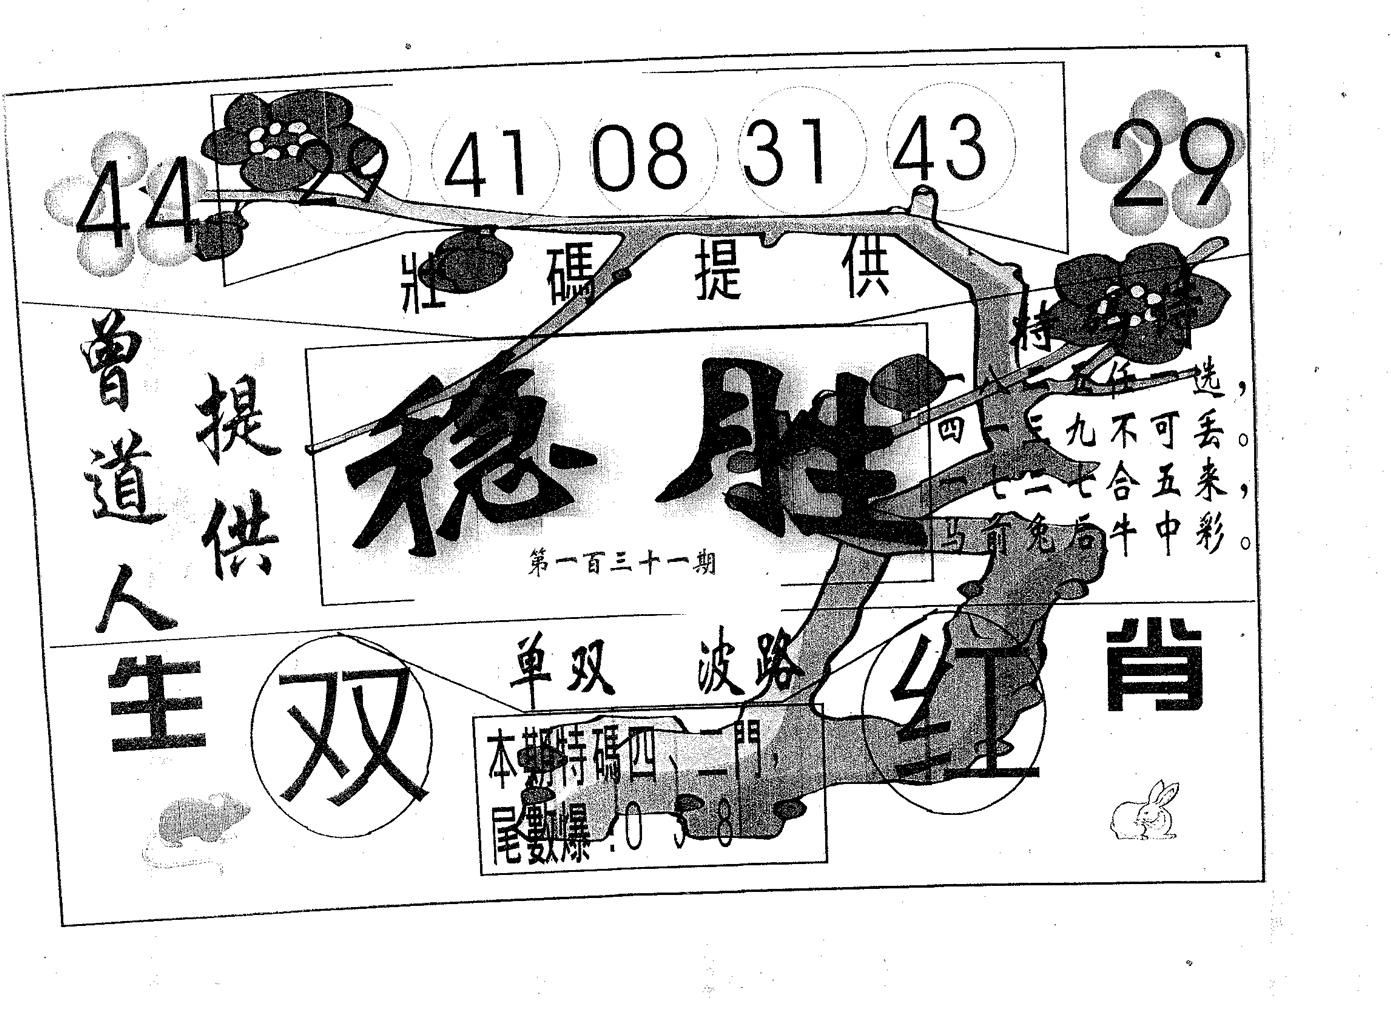 44 29 41 08 31 43 29
壯碼提供
曾道人
提供
稳胜
第一百三十一期
特 诗
一八二五任一选，
四一三九不可丢。
一七二七合五来，
马前兔后牛中彩。
生肖
单双 波路
双
红
本期特碼四、二門，
尾數爆:0 5 8